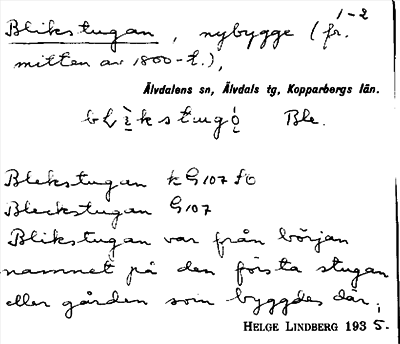 1-2
Blikstugan, nybygge (fr.
mitten av 1800-t.),
Älvdalens sn, Älvdals tg, Kopparbergs län.
Ble.
Blekstugan k G107 fö
Bleckstugan G107
Blikstugan var från början
namnet på den första stugan
eller gården som byggdes där.
HELGE LINDBERG 1935.